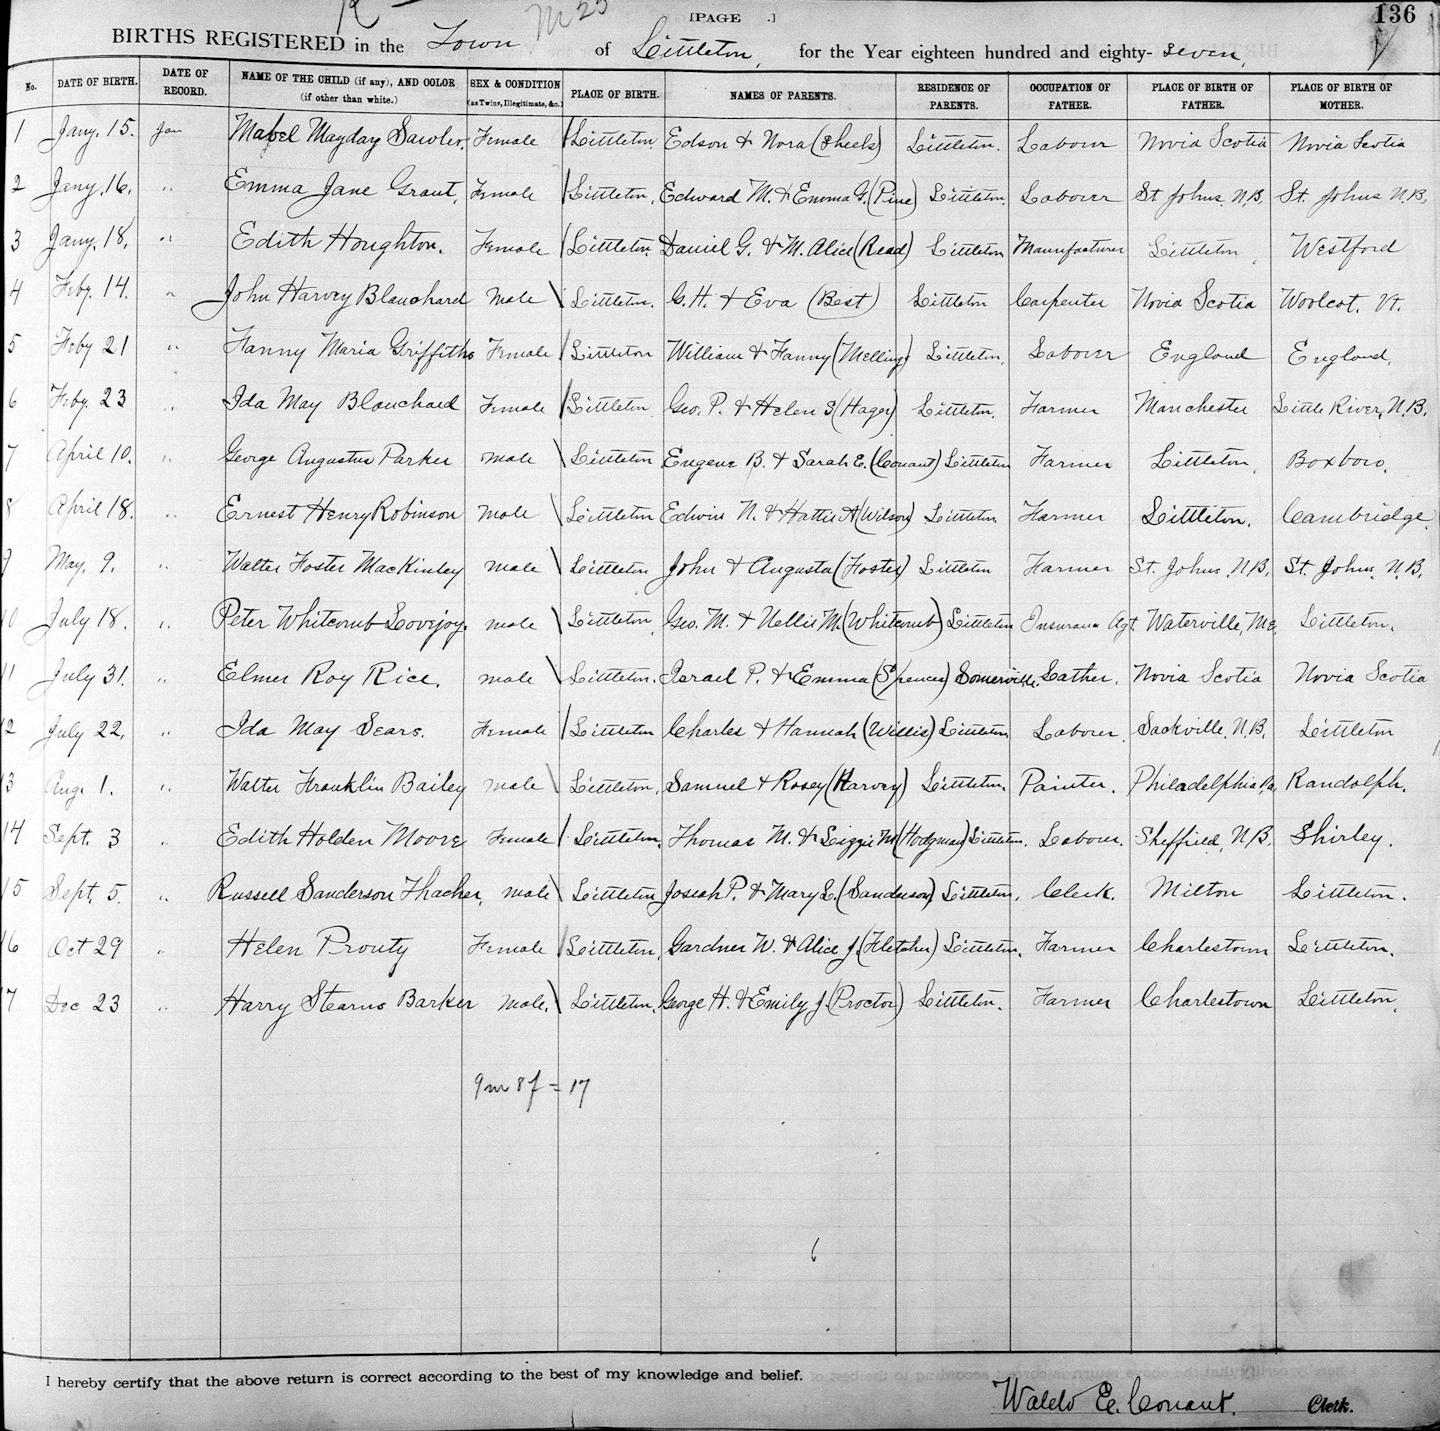 [PAGE .]
136
M 25
BIRTHS REGISTERED in the Town of Littleton, for the Year eighteen hundred and eighty-seven,
No. DATE OF BIRTH. DATE OF RECORD. NAME OF THE CHILD (if any), AND COLOR (if other than white.) SEX & CONDITION (as Twins, Illegitimate, &c.) PLACE OF BIRTH. NAMES OF PARENTS. RESIDENCE OF PARENTS. OCCUPATION OF FATHER. PLACE OF BIRTH OF FATHER. PLACE OF BIRTH OF MOTHER.
1 Jany. 15. Jan Mabel Mayday Sawler. Female Littleton Edson & Nora (Sheels) Littleton. Labour Novia Scotia Novia Scotia
2 Jany. 16. " Emma Jane Grant, Female Littleton, Edward M. & Emma G. (Pine) Littleton. Labourr St Johns N.B. St. Johns N.B.
3 Jany. 18. " Edith Houghton. Female Littleton. Daniel G. & M. Alice (Read) Littleton Manufacturer Littleton, Westford
4 Feby. 14. " John Harvey Blanchard Male Littleton. G. H. & Eva (Best) Littleton Carpenter Novia Scotia Woolcot, Vt.
5 Feby 21 " Fanny Maria Griffiths Female Littleton William & Fanny (Melling) Littleton, Labourr England England,
6 Feby. 23 " Ida May Blanchard Female Littleton Geo. P. & Helen S (Hager) Littleton, Farmer Manchester Little River, N.B.
7 April 10. " George Augustus Parker Male Littleton Eugene B. & Sarah E. (Conant) Littleton Farmer Littleton, Boxboro.
8 April 18. " Ernest Henry Robinson Male Littleton Edwin N. & Hattie A (Wilson) Littleton Farmer Littleton. Cambridge
9 May. 9. " Walter Foster MacKinley Male Littleton John & Augusta (Foster) Littleton Farmer St. Johns, N.B. St. Johns, N.B.
10 July 18. " Peter Whitcomb Lovejoy. male Littleton, Geo. M. & Nellie M. (Whitcomb) Littleton Insurance Agt. Waterville, Me, Littleton.
11 July 31. " Elmer Roy Rice. male Littleton. Israel P. & Emma (Spencer) Somerville. Lather. Novia Scotia Novia Scotia
12 July 22. " Ida May Sears. Female Littleton Charles & Hannah (Willis) Littleton Labourr, Sackville, N.B. Littleton
13 Aug. 1. " Walter Franklin Bailey male Littleton, Samuel & Rosey (Harvey) Littleton. Painter. Philadelphia Pa, Randolph.
14 Sept. 3 " Edith Holden Moore Female Littleton, Thomas M. & Lizzie M (Hodgman) Littleton. Labour. Sheffield, N.B. Shirley.
15 Sept. 5. " Russell Sanderson Thacher, male Littleton Josiah P. & Mary L. (Sanderson) Littleton, Clerk. Milton Littleton.
16 Oct 29 " Helen Prouty Female Littleton, Gardner W. & Alice J. (Fletcher) Littleton. Farmer Charlestown Littleton.
17 Dec 23 " Harry Stearns Barker Male. Littleton, George H. & Emily J. (Proctor) Littleton. Farmer Charlestown Littleton,
9m 8f = 17
I hereby certify that the above return is correct according to the best of my knowledge and belief.
Waldo E. Conant. Clerk.